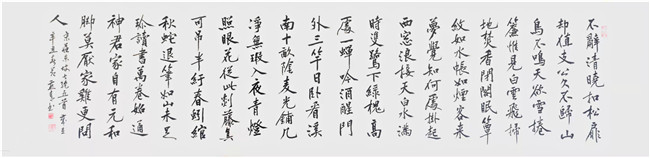 不辭清曉扣松扉
却值支公久不歸山
鳥不鳴天欲雪捲
簾惟見白雲飛掃
地焚香閉閣眠簟
紋如水帳如煙客來
夢覺知何處掛起
西窗浪接天白水滿
時雙鷺下綠槐高
處一蟬吟酒醒門
外三竿日臥看溪
南十畝陰麦光鋪几
淨無瑕入夜青燈
照眼花從此剡藤真
可弔半紆春蚓綰
秋蛇退筆如山未足
珍讀書萬卷始通
神君家自有元和
脚莫厭家雞更問
人